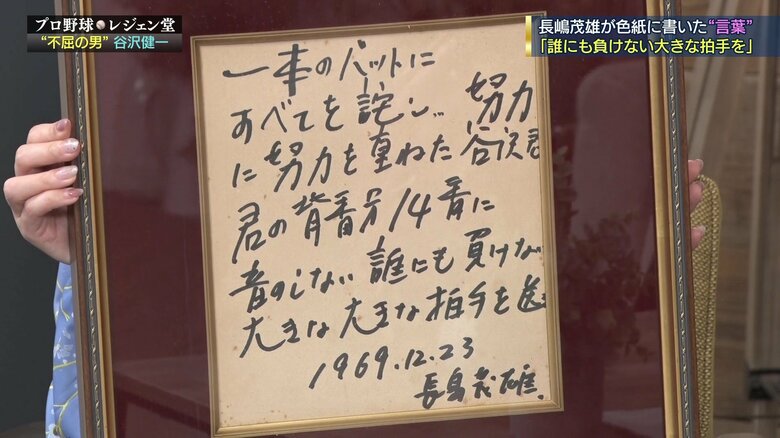 プロ野球レジェン堂
“不屈の男” 谷沢健一
長嶋茂雄が色紙に書いた“言葉”
「誰にも負けない大きな拍手を」
一本のバットに
すべてを託し 努力
に努力を重ねた 谷沢君
君の背番号14番に
音のしない 誰にも負けない
大きな大きな拍手を送る
1969.12.23
長島茂雄